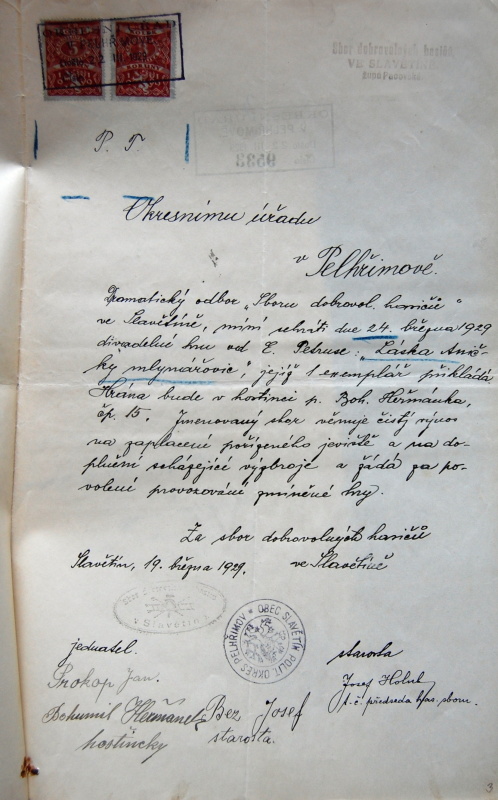 Sbor dobrovolných hasičů
VE SLAVĚTÍNĚ
9533
P. T.
Okresnímu úřadu
v Pelhřimově.
Dramatický odbor "Sboru dobrovol. hasičů"
ve Slavětíně, míní sehráti dne 24. března 1929
divadelní hru od E. Petruse: "Láska Anič-
ky mlynářovic", jejíž 1 exemplář přikládá
Hrána bude v hostinci p. Boh. Heřmánka,
čp. 15. Jmenovaný sbor věnuje čistý výnos
na zaplacení pořízeného jeviště a na do-
plnění scházející výzbroje a žádá za po-
volení provozování zmíněné hry.
Za sbor dobrovolných hasičů
Slavětín, 19. března 1929. ve Slavětíně
v Slavětíně
OBEC SLAVĚTÍN POLIT. OKRES PELHŘIMOV
jednatel. starosta
Prokop Jan. Josef
t. č. předseda sboru.
Bohumil Heřmánek Bez Josef
hostinský starosta.
3